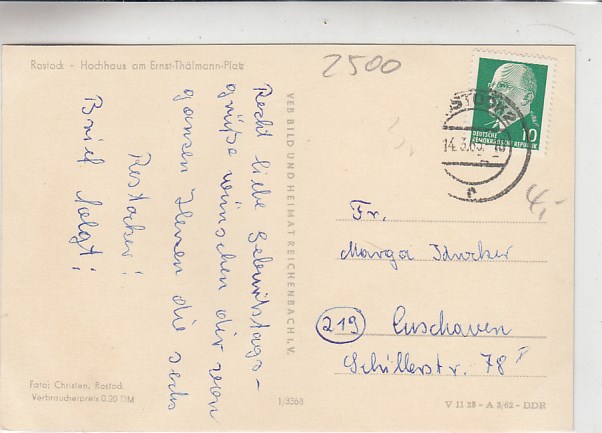 Rostock - Hochhaus am Ernst-Thälmann-Platz
2500
Recht liebe Geburtstags-
grüße wünschen dir von
ganzen Herzen die sechs
Rostocker!
Brief folgt!
VEB BILD UND HEIMAT REICHENBACH I. V.
DEUTSCHE
DEMOKRATISCHE REPUBLIK
10
14.3.63
4,-
Fr.
Marga
219 Cuxhaven
Schillerstr. 78 I
Foto: Christen, Rostock
Verbraucherpreis 0.20 DM
1/3368
V 11 28 - A 3/62 - DDR